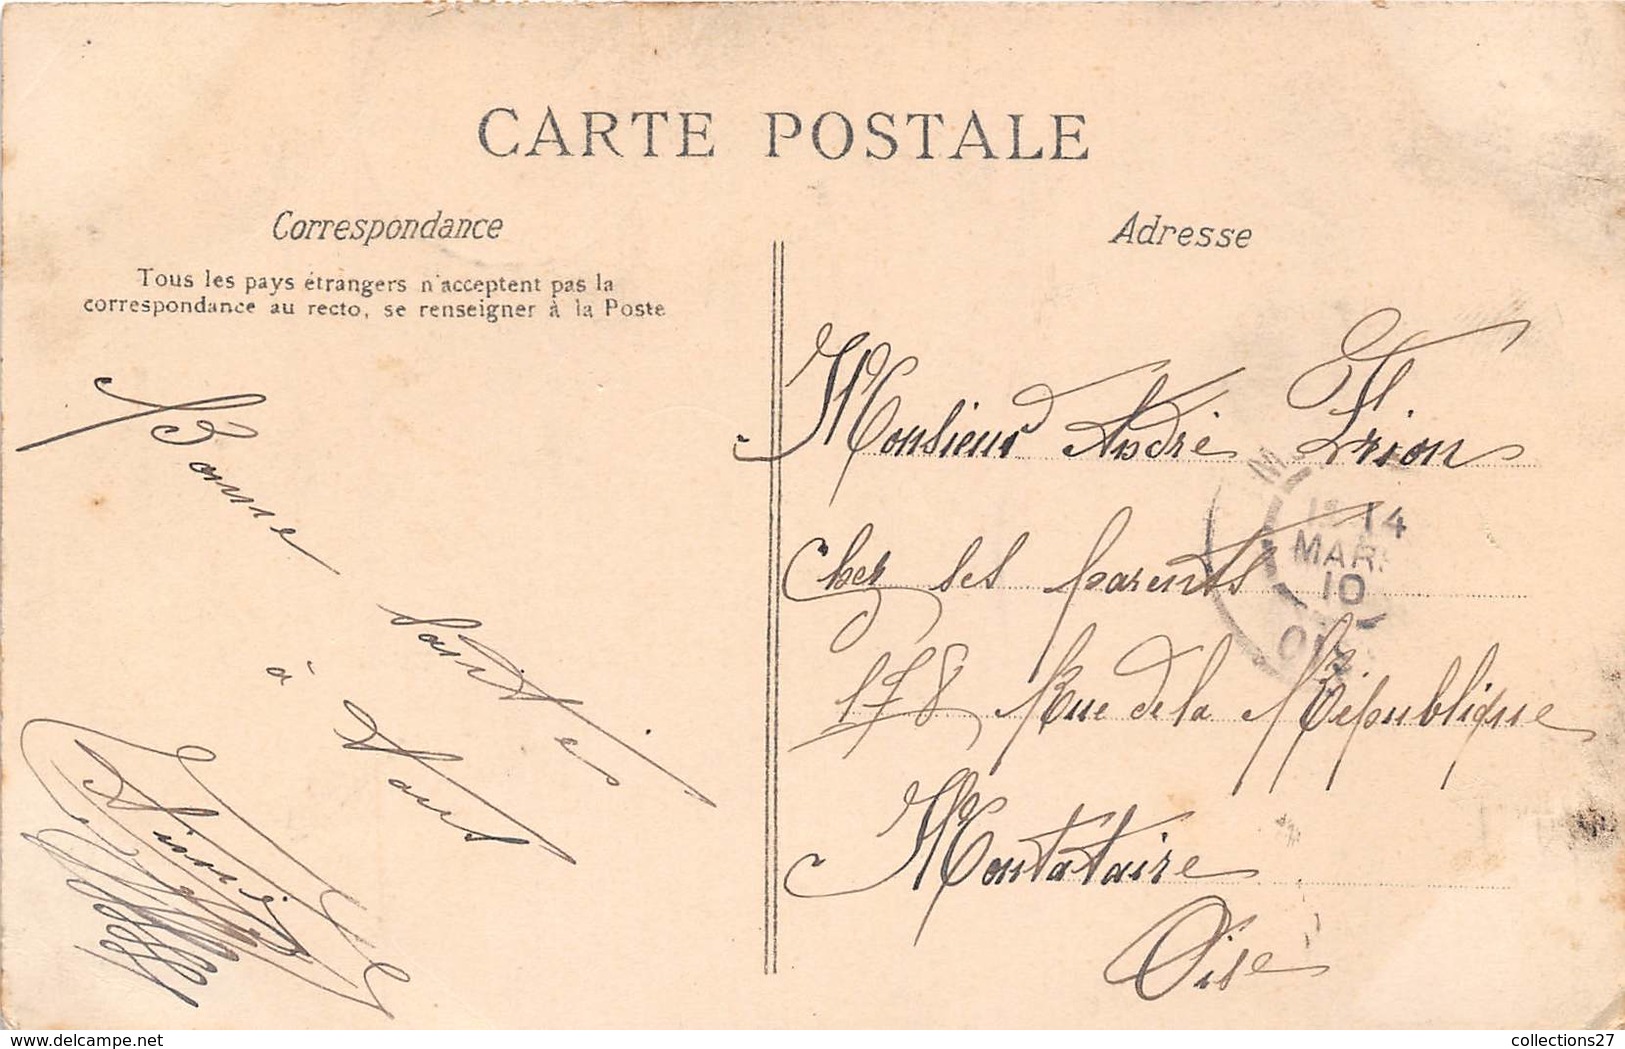 CARTE POSTALE
Correspondance
Tous les pays étrangers n'acceptent pas la
correspondance au recto, se renseigner à la Poste
Bonne
Santée
à
Vous
Aimé
Adresse
Monsieur André
Chez ses parents
178 Rue de la République
Montataire
Oise
14
MAR
10
www.delcampe.net
collections27